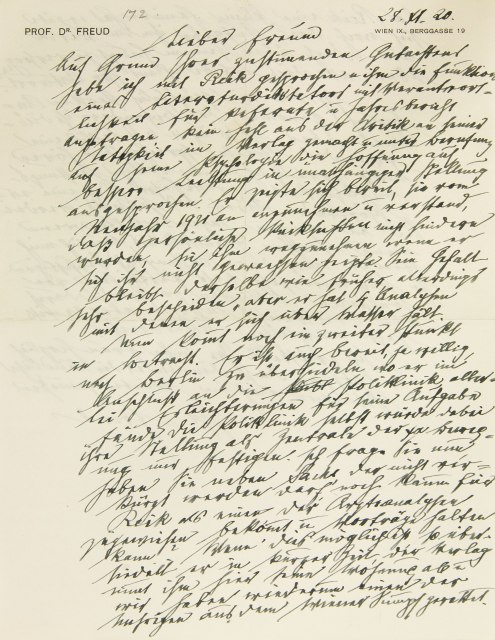 172 28. XI. 20.
PROF. DR. FREUD WIEN IX., BERGGASSE 19
Lieber Freund
Auf Grund Ihres zustimmenden Gutachtens
habe ich mit Reik gesprochen u ihm die Funktion
eines Literaturdirektors mit Verantwort-
lichkeit für Referate u Jahresbericht
angetragen kein Hehl aus der Kritik an seiner
Tätigkeit im Verlag gemacht u unter Berufung
auf seine Psychologie die Hoffnung auf
bessere Leistung in unabhängiger Stellung
ausgesprochen. Er zeigte sich bereit, sie vom
Neujahr 1921 an anzunehmen u verstand
daß persönliche Rücksichten nicht hindern
würden, sie ihm wegzunehmen wenn er
sich ihr nicht gewachsen zeigte. Sein Gehalt
bleibt dasselbe wie früher, allerdings
sehr bescheiden, aber er hat 4 Analysen
mit denen er sich über Wasser hält.
Nun komt noch ein zweiter Punkt
in Betracht. Er ist auch bereit, ja willig
nach Berlin zu übersiedeln, wo er im
Anschluß an die Poliklinik aller-
lei Erleichterungen für seine Aufgabe
fände. Die Poliklinik selbst würde dabei
ihre Stellung als Zentrale der ψα Beweg-
ung nur festigen. Ich frage Sie nun
haben Sie neben Sachs der nicht ver-
kürzt werden darf noch Raum für
Reik als einen der Arztanalysen
zugewiesen bekomt u Vorträge halten
kann? Wenn dies möglich ist, über-
siedelt er in kurzer Zeit, der Verlag
nimt ihm hier seine Wohnung ab u
wir haben wiederum einen der
unsrigen aus dem Wiener Sumpf gerettet.